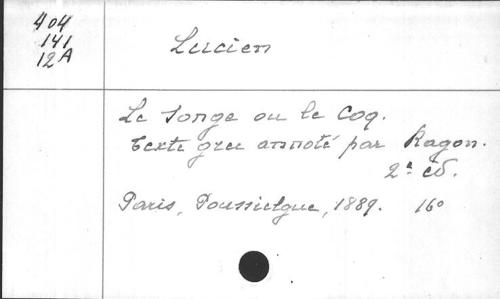 404
141
12A
Lucien
Le Songe ou le Coq.
Texte grec annoté par Ragon.
2ᵃ ed.
Paris, Poussielgue, 1889. 16°